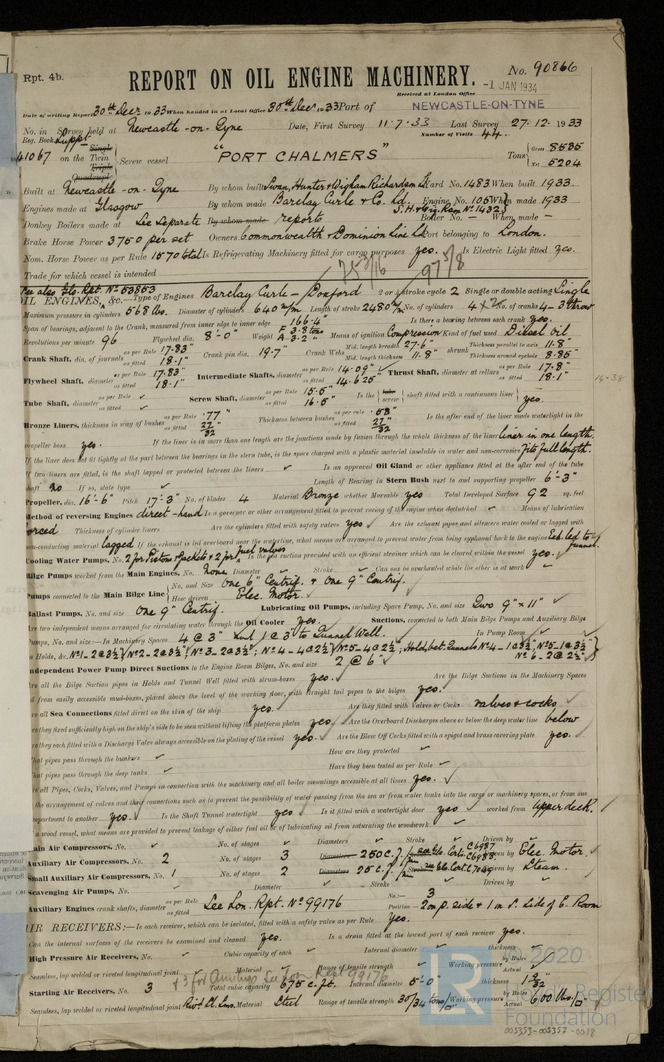 Rpt. 4b.
REPORT ON OIL ENGINE MACHINERY.
No. 90866
Received at London Office -1 JAN 1934
Date of writing Report 30th Decr 1933 When handed in at Local Office 30th Decr 1933 Port of NEWCASTLE-ON-TYNE
No. in Survey held at Newcastle-on-Tyne Date, First Survey 11.7.33 Last Survey 27.12.1933
Reg. Book. Suppt. Number of Visits 44
41067 on the Single Twin Triple Quadruple Screw vessel "PORT CHALMERS" Tons Gross 8535 Net 5204
Built at Newcastle-on-Tyne By whom built Swan, Hunter & Wigham Richardson Ld Yard No. 1483 When built 1933
Engines made at Glasgow By whom made Barclay Curle & Co. Ld. Engine No. When made 1933
Donkey Boilers made at See Separate By whom made reports Boiler No. - When made -
Brake Horse Power 3750 per set Owners Commonwealth & Dominion Line Ld Port belonging to London.
Nom. Horse Power as per Rule 1570 total Is Refrigerating Machinery fitted for cargo purposes yes. Is Electric Light fitted yes.
Trade for which vessel is intended
See also Gls. Rpt. No 53853
OIL ENGINES, &c.—Type of Engines Barclay Curle - Doxford 2 or 4 stroke cycle 2 Single or double acting Single
Maximum pressure in cylinders 568 lbs. Diameter of cylinders 640 m/m Length of stroke 2480 m/m No. of cylinders 4 No. of cranks 4-3 throw
Span of bearings, adjacent to the Crank, measured from inner edge to inner edge Is there a bearing between each crank yes.
Revolutions per minute 96 Flywheel dia. 8'-0" Weight Means of ignition Compression Kind of fuel used Diesel oil.
Crank Shaft, dia. of journals as per Rule 17.83" as fitted 18.1" Crank pin dia. 19.7" Crank Webs Mid. length breadth 27.6" Mid. length thickness 11.8" shrunk Thickness parallel to axis 11.8" Thickness around eyehole 8.85"
Flywheel Shaft, diameter as per Rule 17.83" as fitted 18.1" Intermediate Shafts, diameter as per Rule 14.09" as fitted 14.625" Thrust Shaft, diameter at collars as per Rule 17.8" as fitted 18.1"
Tube Shaft, diameter as per Rule as fitted Screw Shaft, diameter as per Rule as fitted 16.5" Is the tube screw shaft fitted with a continuous liner yes.
Bronze Liners, thickness in way of bushes as per Rule .77" as fitted 27/32 Thickness between bushes as per rule .58" as fitted 27/32 Is the after end of the liner made watertight in the
propeller boss yes. If the liner is in more than one length are the junctions made by fusion through the whole thickness of the liner liner in one length.
If the liner does not fit tightly at the part between the bearings in the stern tube, is the space charged with a plastic material insoluble in water and non-corrosive Fits full length.
If two liners are fitted, is the shaft lapped or protected between the liners Is an approved Oil Gland or other appliance fitted at the after end of the tube
shaft No If so, state type Length of Bearing in Stern Bush next to and supporting propeller 6'-3"
Propeller, dia. 16'-6" Pitch 17'-3" No. of blades 4 Material Bronze whether Moveable yes Total Developed Surface 92 sq. feet
Method of reversing Engines direct-hand Is a governor or other arrangement fitted to prevent racing of the engine when declutched Means of lubrication
forced Thickness of cylinder liners Are the cylinders fitted with safety valves yes Are the exhaust pipes and silencers water cooled or lagged with
non-conducting material lagged If the exhaust is led overboard near the waterline, what means are arranged to prevent water from being syphoned back to the engine Exh. led to funnel.
Cooling Water Pumps, No. 2 for Pistons & Jackets & 2 for fuel valves Is the sea suction provided with an efficient strainer which can be cleared within the vessel yes.
Bilge Pumps worked from the Main Engines, No. None Diameter Stroke Can one be overhauled while the other is at work
Pumps connected to the Main Bilge Line No. and Size One 6" Centrif. & One 9" Centrif. How driven Elec. Motor.
Ballast Pumps, No. and size One 9" Centrif. Lubricating Oil Pumps, including Spare Pump, No. and size Two 9" x 11"
Are two independent means arranged for circulating water through the Oil Cooler yes. Suctions, connected to both Main Bilge Pumps and Auxiliary Bilge
Pumps, No. and size:—In Machinery Spaces 4 @ 3" and 1 @ 3 to Tunnel Well. In Pump Room
In Holds, &c. No 1-2@3½ No 2-2@3½"; No 3-2@3½"; No 4-4@2½ No 5-4@2½; No 4-1@3½; No 5-1@3½ No 6-2@2½
Independent Power Pump Direct Suctions to the Engine Room Bilges, No. and size 2 @ 6"
Are all the Bilge Suction pipes in Holds and Tunnel Well fitted with strum-boxes yes. Are the Bilge Suctions in the Machinery Spaces
led from easily accessible mud-boxes, placed above the level of the working floor, with straight tail pipes to the bilges yes.
Are all Sea Connections fitted direct on the skin of the ship yes. Are they fitted with Valves or Cocks valves & cocks
Are they fixed sufficiently high on the ship's side to be seen without lifting the platform plates yes, Are the Overboard Discharges above or below the deep water line below
Are they each fitted with a Discharge Valve always accessible on the plating of the vessel yes. Are the Blow Off Cocks fitted with a spigot and brass covering plate yes.
What pipes pass through the bunkers How are they protected
What pipes pass through the deep tanks Have they been tested as per Rule
Are all Pipes, Cocks, Valves, and Pumps in connection with the machinery and all boiler mountings accessible at all times yes.
Is the arrangement of valves and their connections such as to prevent the possibility of water passing from the sea or from water tanks into the cargo or machinery spaces, or from one
compartment to another yes. Is the Shaft Tunnel watertight yes Is it fitted with a watertight door yes worked from Upper deck.
If a wood vessel, what means are provided to prevent leakage of either fuel oil or of lubricating oil from saturating the woodwork.
Main Air Compressors, No. No. of stages Diameters Stroke Driven by
Auxiliary Air Compressors, No. 2 No. of stages 3 Diameters 250 c.f. See Gls. Certs. C6987 C6988 Driven by Elec. Motor.
Small Auxiliary Air Compressors, No. 1 No. of stages 2 Diameters 25 c.f. Stroke Driven by Steam.
Scavenging Air Pumps, No. Diameter Stroke Driven by
Auxiliary Engines crank shafts, diameter as per Rule as fitted See Lon. Rpt. No 99176 No:— 3 Position - 2 on P. side & 1 on S. side of E. Room
AIR RECEIVERS:—Is each receiver, which can be isolated, fitted with a safety valve as per Rule yes.
Can the internal surfaces of the receivers be examined and cleaned yes. Is a drain fitted at the lowest part of each receiver yes.
High Pressure Air Receivers, No. Cubic capacity of each Internal diameter thickness
Seamless, lap welded or riveted longitudinal joint Material Range of tensile strength Working pressure by Rules Actual
+3 for Auxiliary See Lon Rept 99176
Starting Air Receivers, No. 3 Total cubic capacity 675 c.ft. Internal diameter 5'-0" thickness 1 9/32
Seamless, lap welded or riveted longitudinal joint Material Steel Range of tensile strength 30/34 tons/□" Working pressure by Rules Actual 600 lbs/□"
© 2020
Lloyd's Register
Foundation